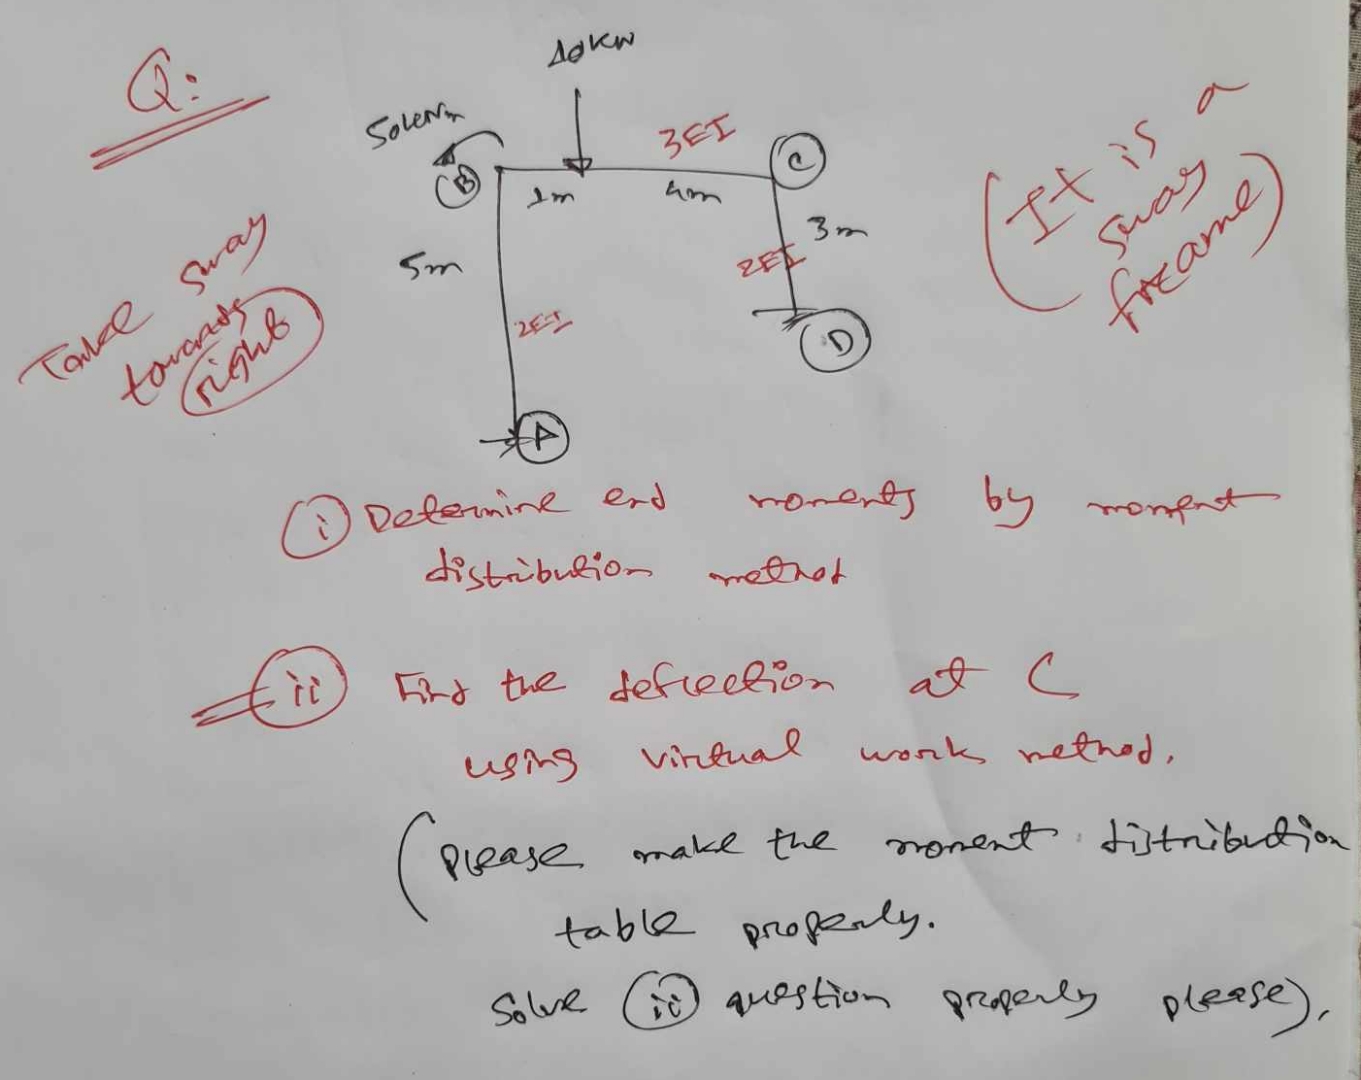 Q:
10KN
50kNm
B
3EI
C
1m
4m
5m
3m
2EI
2EI
D
A
(It is a
sway
frame)
Take sway
towards
right
i Determine end moments by moment
distribution method
ii Find the deflection at C
using virtual work method.
(please make the moment distribution
table properly.
Solve ii question properly please).